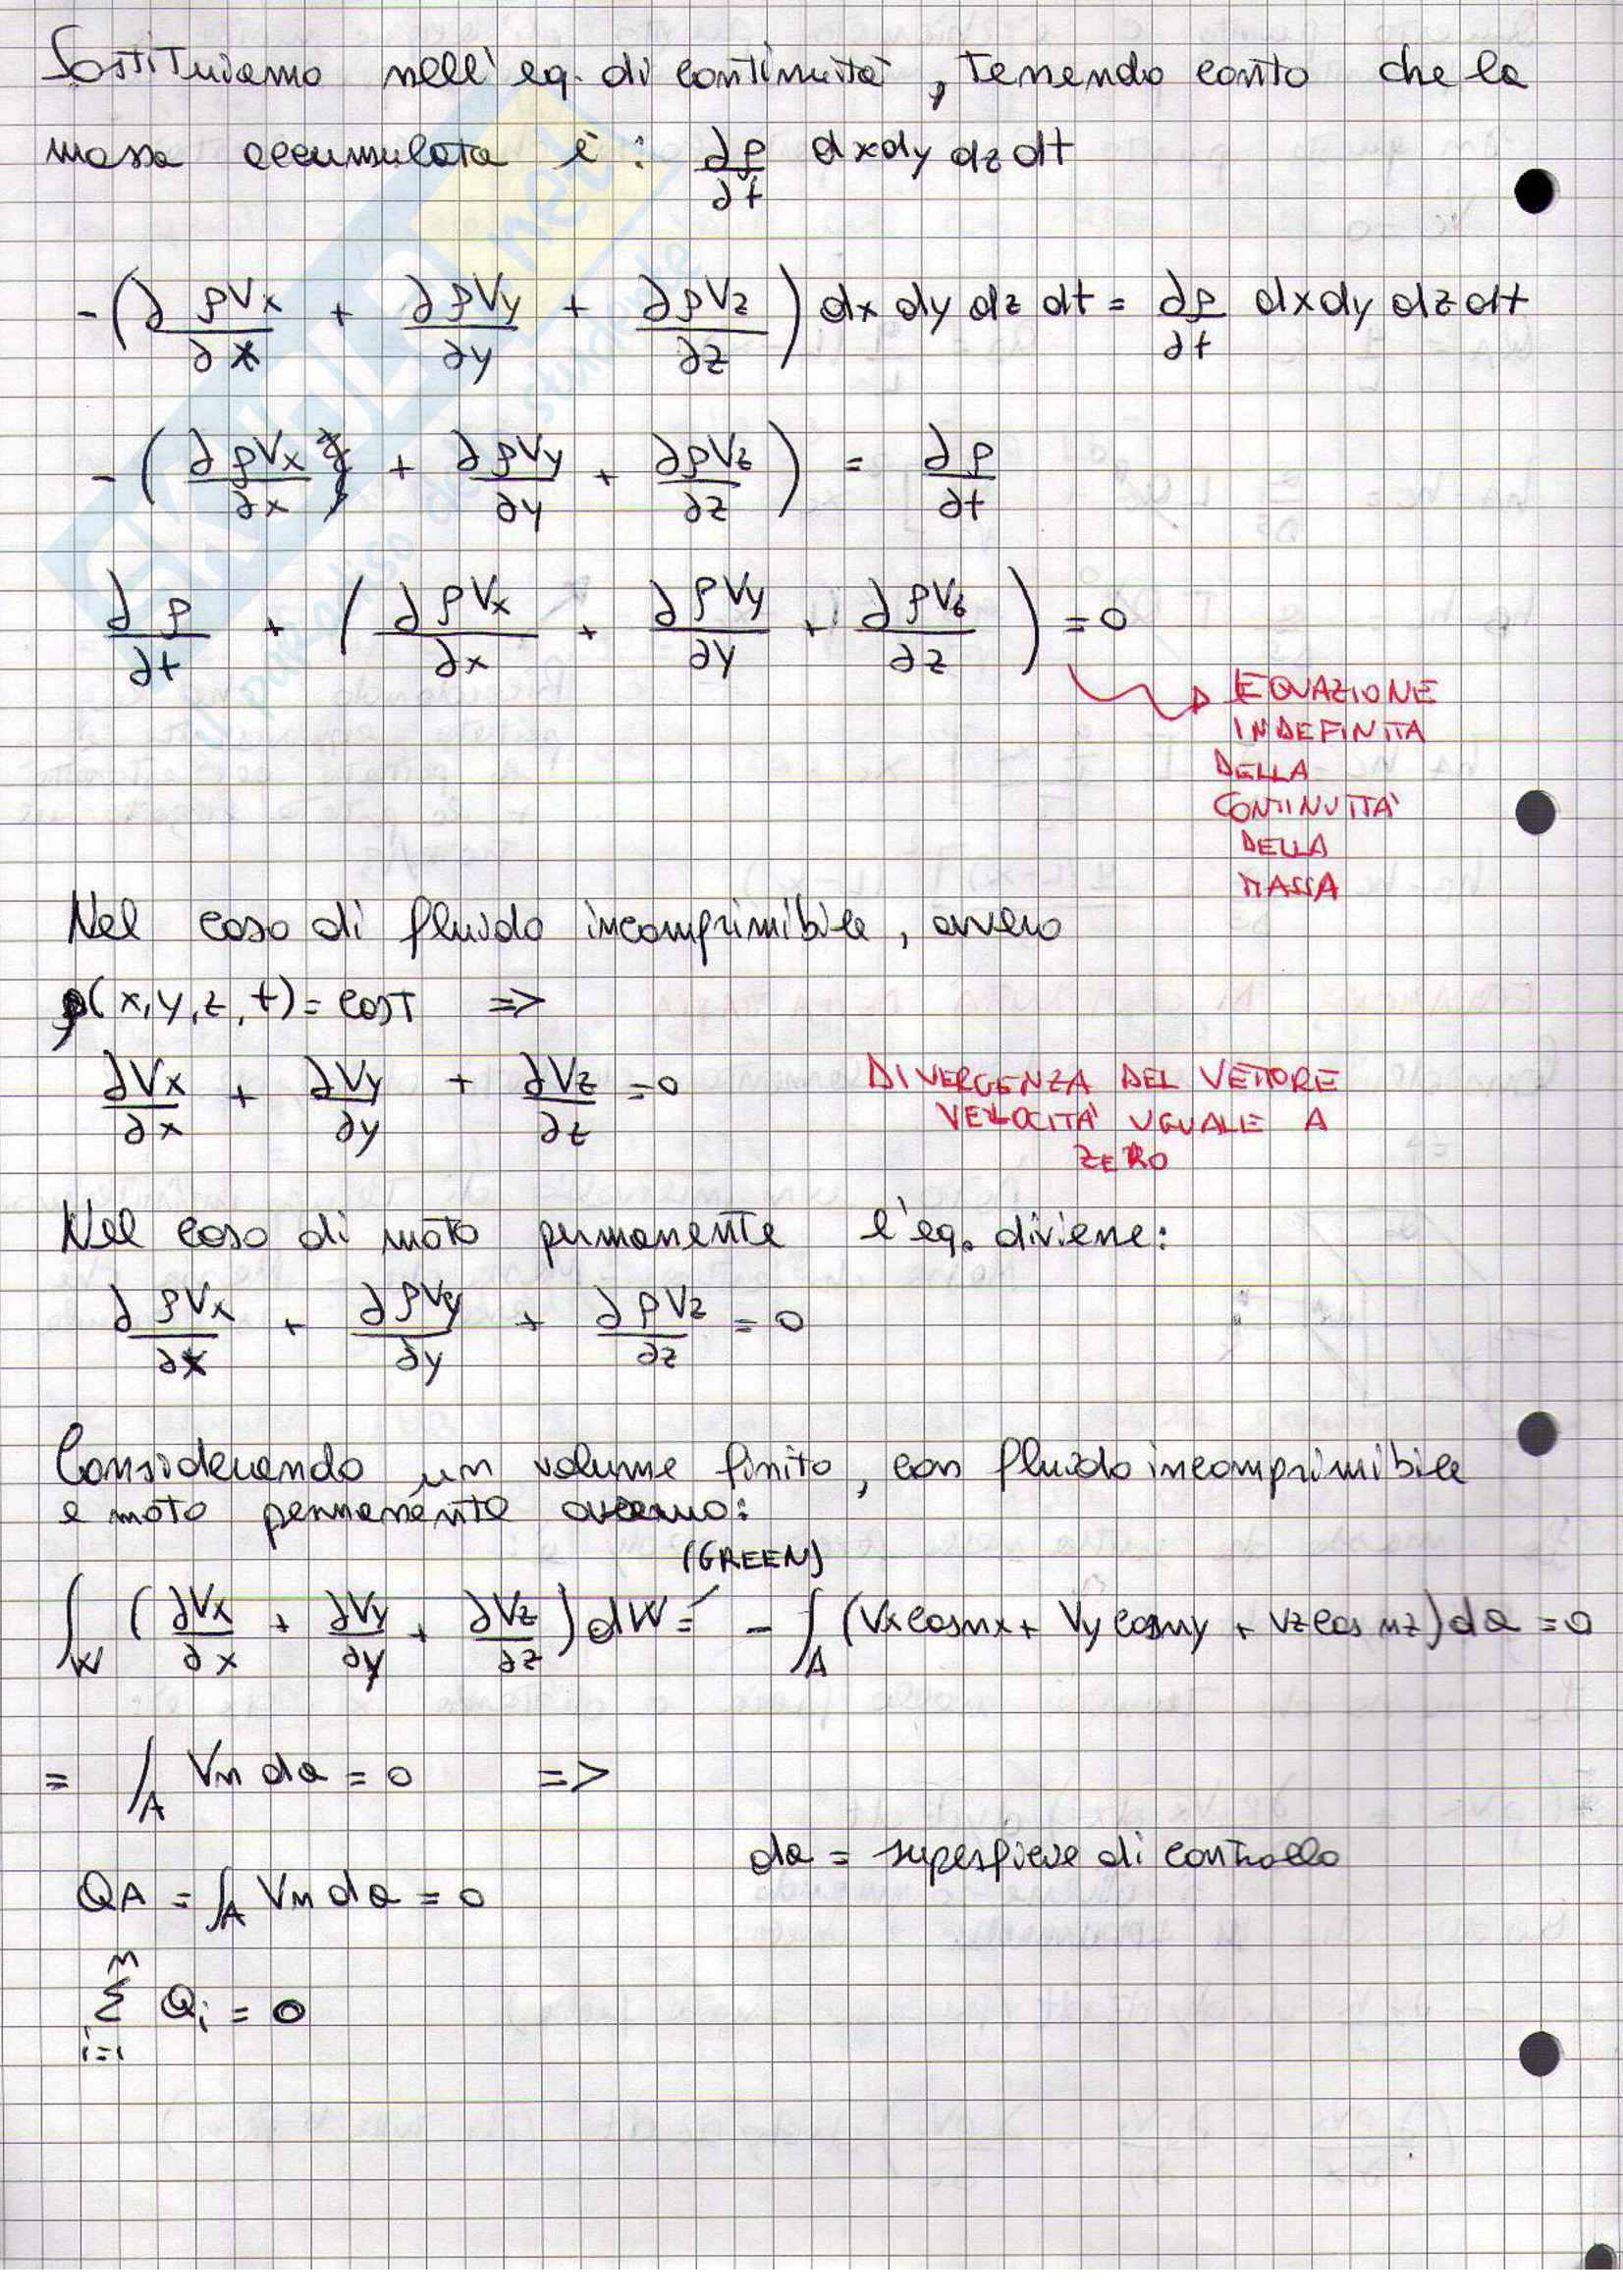 Sostituiamo nell'eq. di continuità, tenendo conto che la
massa accumulata è: ∂ρ/∂t dxdy dz dt
-(∂ρVx/∂x + ∂ρVy/∂y + ∂ρVz/∂z) dx dy dz dt = ∂ρ/∂t dxdy dz dt
-(∂ρVx/∂x + ∂ρVy/∂y + ∂ρVz/∂z) = ∂ρ/∂t
∂ρ/∂t + (∂ρVx/∂x + ∂ρVy/∂y + ∂ρVz/∂z) = 0
EQUAZIONE
INDEFINITA
DELLA
CONTINUITA'
DELLA
MASSA
Nel caso di fluido incomprimibile, ovvero
ρ(x,y,z,t) = cost =>
∂Vx/∂x + ∂Vy/∂y + ∂Vz/∂z = 0
DIVERGENZA DEL VETTORE
VELOCITA' UGUALE A
ZERO
Nel caso di moto permanente l'eq. diviene:
∂ρVx/∂x + ∂ρVy/∂y + ∂ρVz/∂z = 0
Considerando un volume finito, con fluido incomprimibile
e moto permanente avremo:
(GREEN)
∫W (∂Vx/∂x + ∂Vy/∂y + ∂Vz/∂z) dW = - ∫A (Vx cosnx + Vy cosny + Vz cos nz) da = 0
= ∫A Vn da = 0 =>
da = superficie di controllo
QA = ∫A Vn da = 0
n
Σ Qi = 0
i=1
SKUOLA.net
il paradiso dello studente